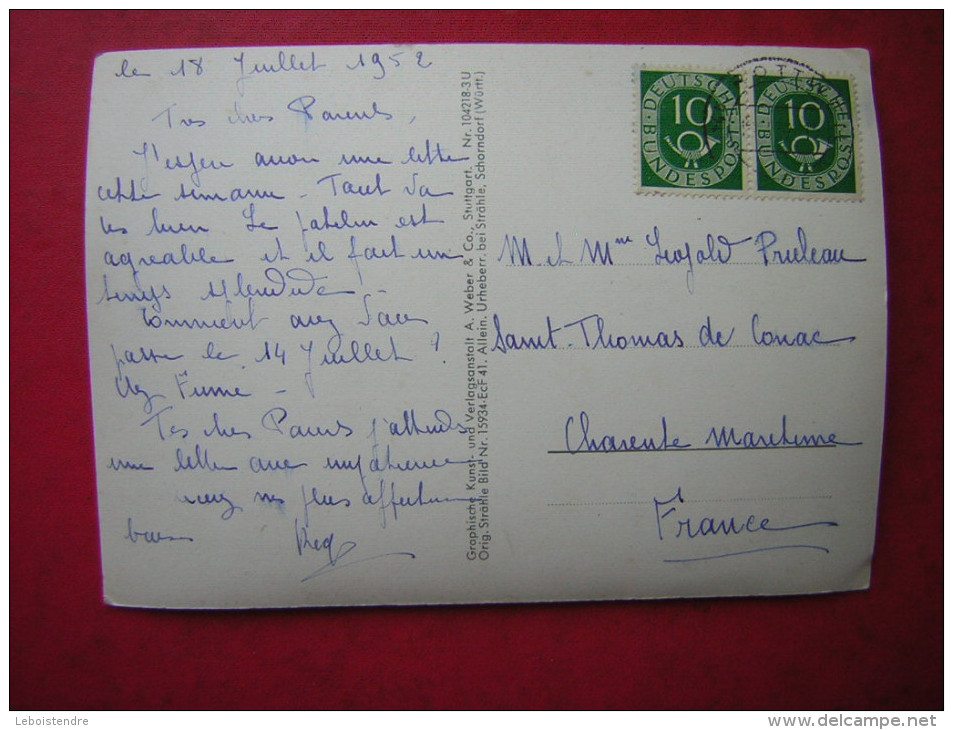 le 18 Juillet 1952
Tres chers Parents,
J'espere avoir une lettre
cette semaine - Tout va
tres bien Le patelin est
agreable et il fait un
temps splendide -
Comment avez vous
passé le 14 Juillet ?
chez Fumé -
Tres chers Parents j'attends
une lettre avec impatience
recevez mes plus affectueux
baisers
Graphische Kunst- und Verlagsanstalt A. Weber & Co., Stuttgart. Nr. 104218-3U
Orig. Strähle Bild Nr. 15934-EcF 41. Allein. Urheberr. bei Strähle, Schorndorf (Württ.)
DEUTSCHE BUNDESPOST 10
DEUTSCHE BUNDESPOST 10
M et Mme Leopold Pruleau
Saint-Thomas de Conac
Charente Maritime
France
Leboistendre
www.delcampe.net